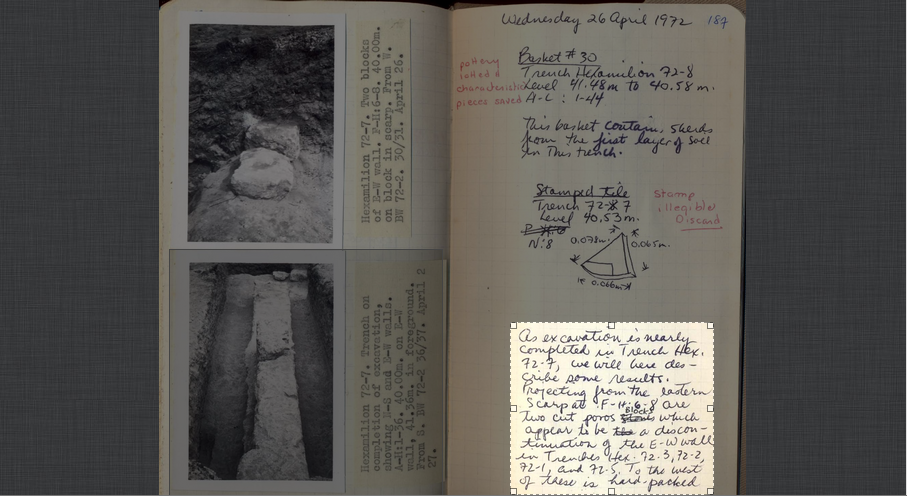 Hexamilion 72-7. Two blocks
of E-W wall. F-H:6-8. 40.00m.
on block in scarp. From W.
BW 72-2. 30/31. April 26.
Hexamilion 72-7. Trench on
completion of excavation,
showing N-S and E-W walls.
A-H:1-36. 40.00m. on E-W
wall, 41.36m. in foreground.
From S. BW 72-2 36/37. April 2
27.
Wednesday 26 April 1972 187
pottery
lotted &
characteristic
pieces saved
Basket # 30
Trench Hexamilion 72-8
Level 41.48m to 40.58 m.
A-C : 1-44
This basket contains sherds
from the first layer of soil
in this trench.
Stamped tile
Trench 72-7
Level 40.53m.
N:8
Stamp
illegible
Discard
0.073m
0.065m.
0.066m
As excavation is nearly
completed in Trench Hex.
72-7, we will here des-
cribe some results.
Projecting from the eastern
Scarp at F-H:6-8 are
two cut poros Blocks which
appear to be a discon-
tinuation of the E-W wall
in Trenches Hex. 72-3, 72-2,
72-1, and 72-5. To the west
of these is hard packed